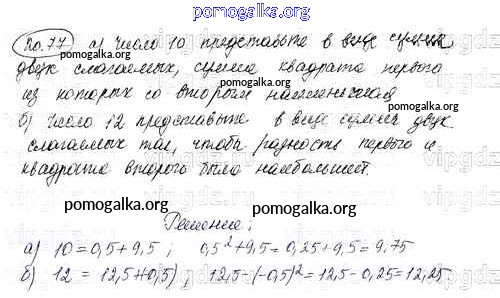 pomogalka.org
№.77 а) Число 10 представьте в виде суммы
двух слагаемых, сумма квадрата первого
из которых со вторым наименьшая
б) Число 12 представьте в виде суммы двух
слагаемых так, чтобы разность первого и
квадрата второго была наибольшей.
pomogalka.org pomogalka.org
Решение:
а) 10 = 0,5 + 9,5 ; 0,5² + 9,5 = 0,25 + 9,5 = 9,75
б) 12 = 12,5 + (-0,5) ; 12,5 - (-0,5)² = 12,5 - 0,25 = 12,25
pomogalka.org